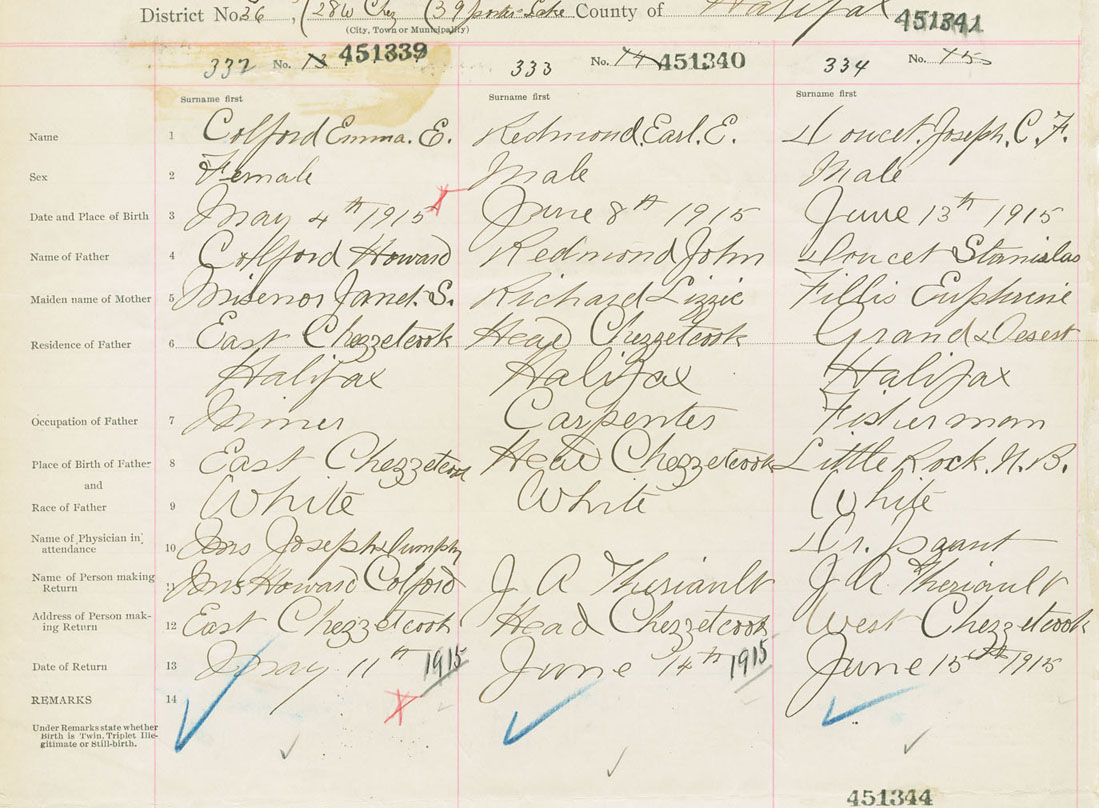 District No 36, (28W Chez (39 Lake County of Halifax 451341
(City, Town or Municipality)
337 No. 13 451339 333 No. 14 451340 334 No. 15
Surname first Surname first Surname first
Name 1 Colford Emma. E. Redmond. Earl. E. Doucet. Joseph. C. F.
Sex 2 Female Male Male
Date and Place of Birth 3 May 4th 1915 June 8th 1915 June 13th 1915
Name of Father 4 Colford Howard Redmond John Doucet Stanislas
Maiden name of Mother 5 Misenor Janet. S. Richard Lizzie Fillis Euphrine
Residence of Father 6 East Chezzetcook Head Chezzetcook Grand Desert
Halifax Halifax Halifax
Occupation of Father 7 Miner Carpenter Fisherman
Place of Birth of Father 8 East Chezzetcook Head Chezzetcook Little Rock. N. B.
and
Race of Father 9 White White White
Name of Physician in attendance 10 Mrs Joseph Dumphy Dr.
Name of Person making Return 11 Mrs Howard Colford J A Theriault J A Theriault
Address of Person making Return 12 East Chezzetcook Head Chezzetcook West Chezzetcook
Date of Return 13 May 11th 1915 June 14th 1915 June 15th 1915
REMARKS 14
Under Remarks state whether
Birth is Twin, Triplet Ille-
gitimate or Still-birth.
451344